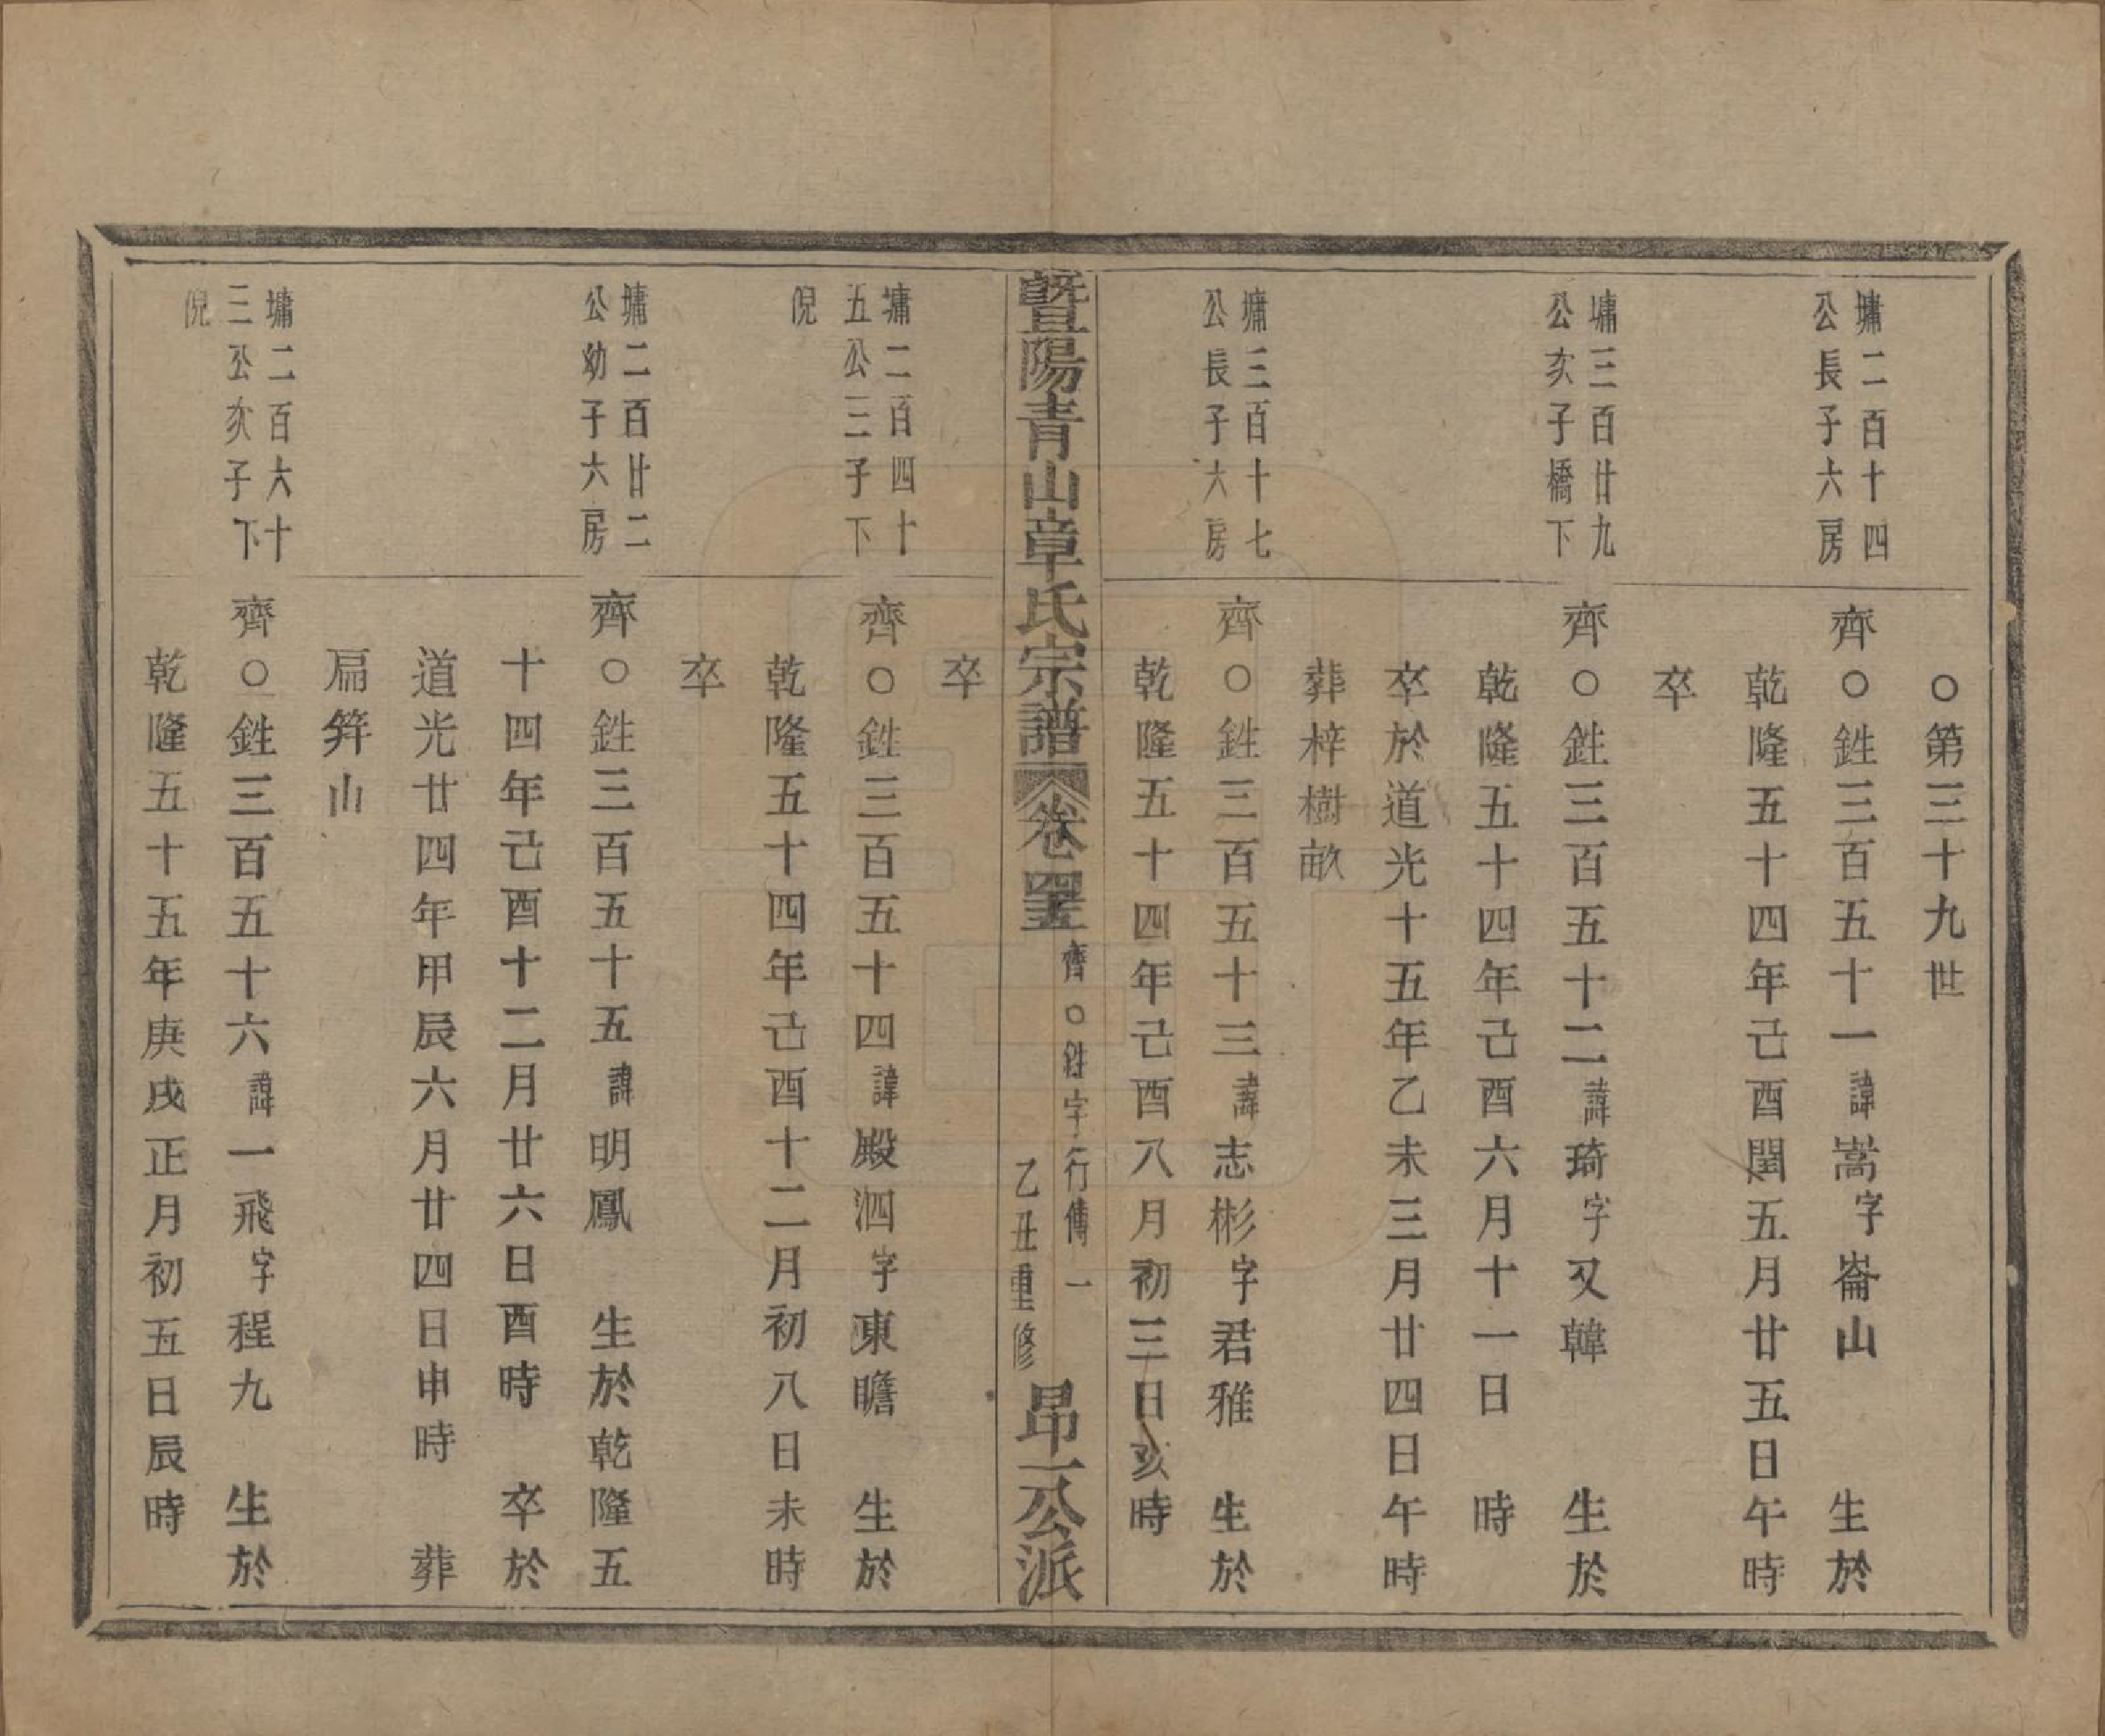 ○第三十九世
墉二百十四
公長子六房
齊○鉎三百五十一諱嵩字崙山 生於
乾隆五十四年己酉閏五月廿五日午時
卒
墉三百廿九
公次子橋下
齊○鉎三百五十二諱琦字又韓 生於
乾隆五十四年己酉六月十一日 時
卒於道光十五年乙未三月廿四日午時
葬梓樹畝
墉三百十七
公長子大房
齊○鉎三百五十三諱志彬字君雅 生於
乾隆五十四年己酉八月初三日亥時
暨陽青山章氏宗譜 卷四十五 齊○鉎字行傳一 乙丑重修 昂一公派
卒
墉二百四十
五公三子下
倪
齊○鉎三百五十四諱殿泗字東瞻 生於
乾隆五十四年己酉十二月初八日未時
卒
墉二百廿二
公幼子六房
齊○鉎三百五十五諱明鳳 生於乾隆五
十四年己酉十二月廿六日酉時 卒於
道光廿四年甲辰六月廿四日申時 葬
扁笄山
墉二百六十
三公次子下
倪
齊○鉎三百五十六諱一飛字程九 生於
乾隆五十五年庚戌正月初五日辰時